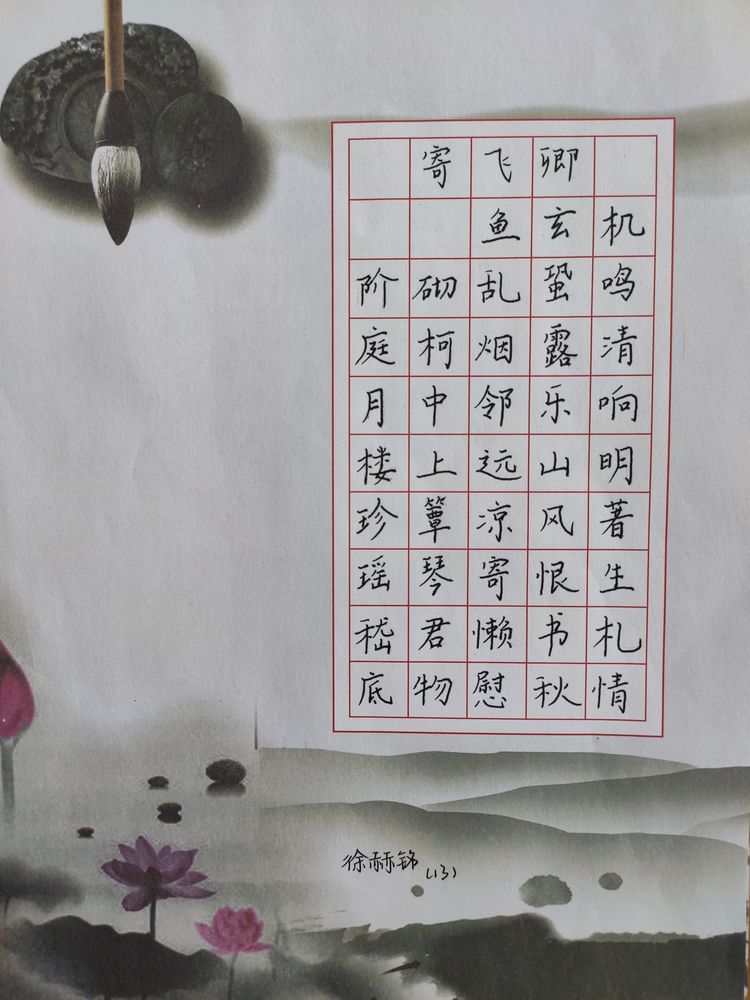 寄飞卿
鱼玄机
阶砌乱蛩鸣
庭柯烟露清
月中邻乐响
楼上远山明
珍簟凉风著
瑶琴寄恨生
嵇君懒书札
底物慰秋情
徐赫铭(13)